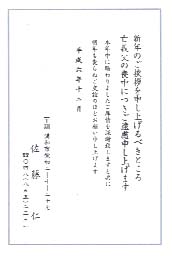 新年のご挨拶を申し上げるべきところ
亡義父の喪中につきご遠慮申し上げます
本年中に賜わりましたご厚情を深謝致しますと共に
明年も変らぬご交誼のほどお願い申し上げます
平成六年十二月
佐藤仁